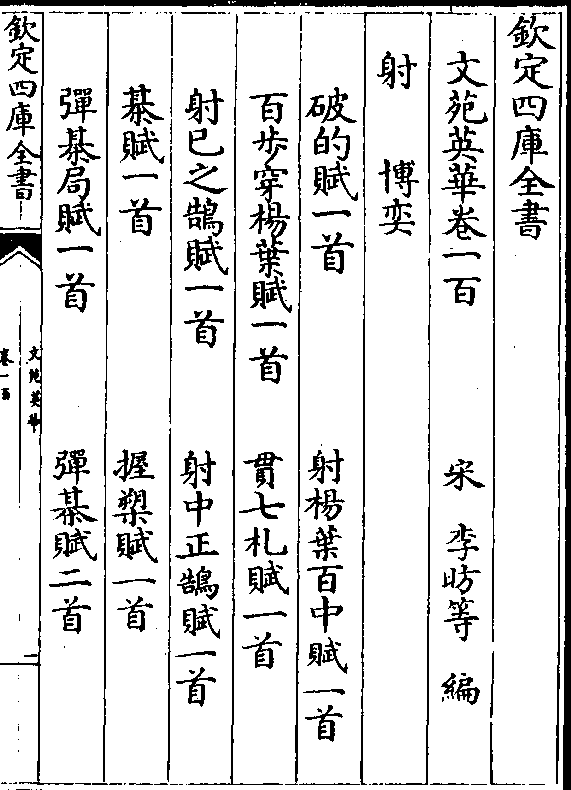 欽定四庫全書
文苑英華卷一百
宋 李昉等 編
射 博奕
破的賦一首 射楊葉百中賦一首
百步穿楊葉賦一首 貫七札賦一首
射已之鵠賦一首 射中正鵠賦一首
棊賦一首 握槊賦一首
彈棊局賦一首 彈棊賦二首
欽定四庫全書
文苑英華
卷一百
一